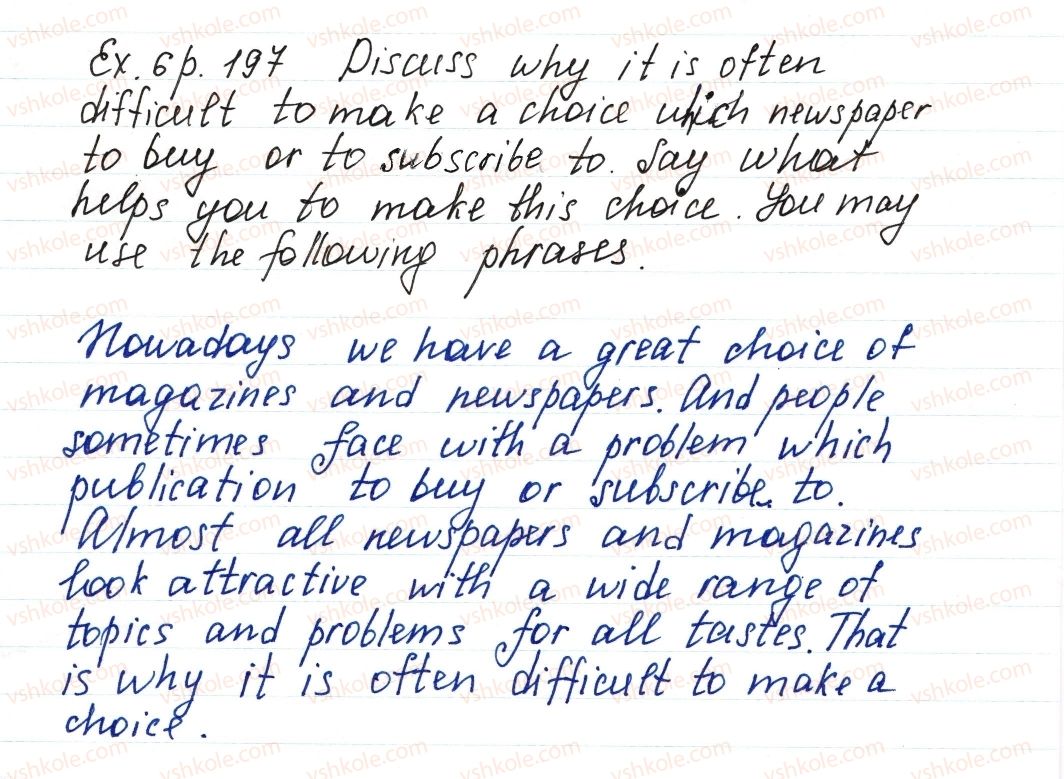 Ex. 6 p. 197 Discuss why it is often
difficult to make a choice which newspaper
to buy or to subscribe to. Say what
helps you to make this choice. You may
use the following phrases.
Nowadays we have a great choice of
magazines and newspapers. And people
sometimes face with a problem which
publication to buy or subscribe to.
Almost all newspapers and magazines
look attractive with a wide range of
topics and problems for all tastes. That
is why it is often difficult to make a
choice.
vshkole.com